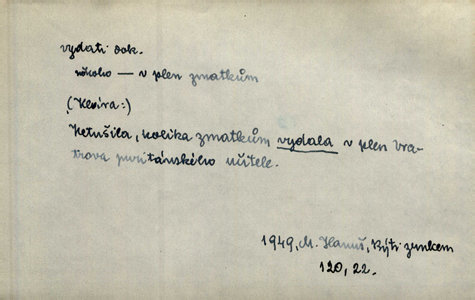 vydati dok.
někoho — v plen zmatkům
(Kevíra:)
Netušila, kolika zmatkům vydala v plen bra-
trova puritánského učitele.
1949, M. Hanuš, Býti zvukem
120, 22.